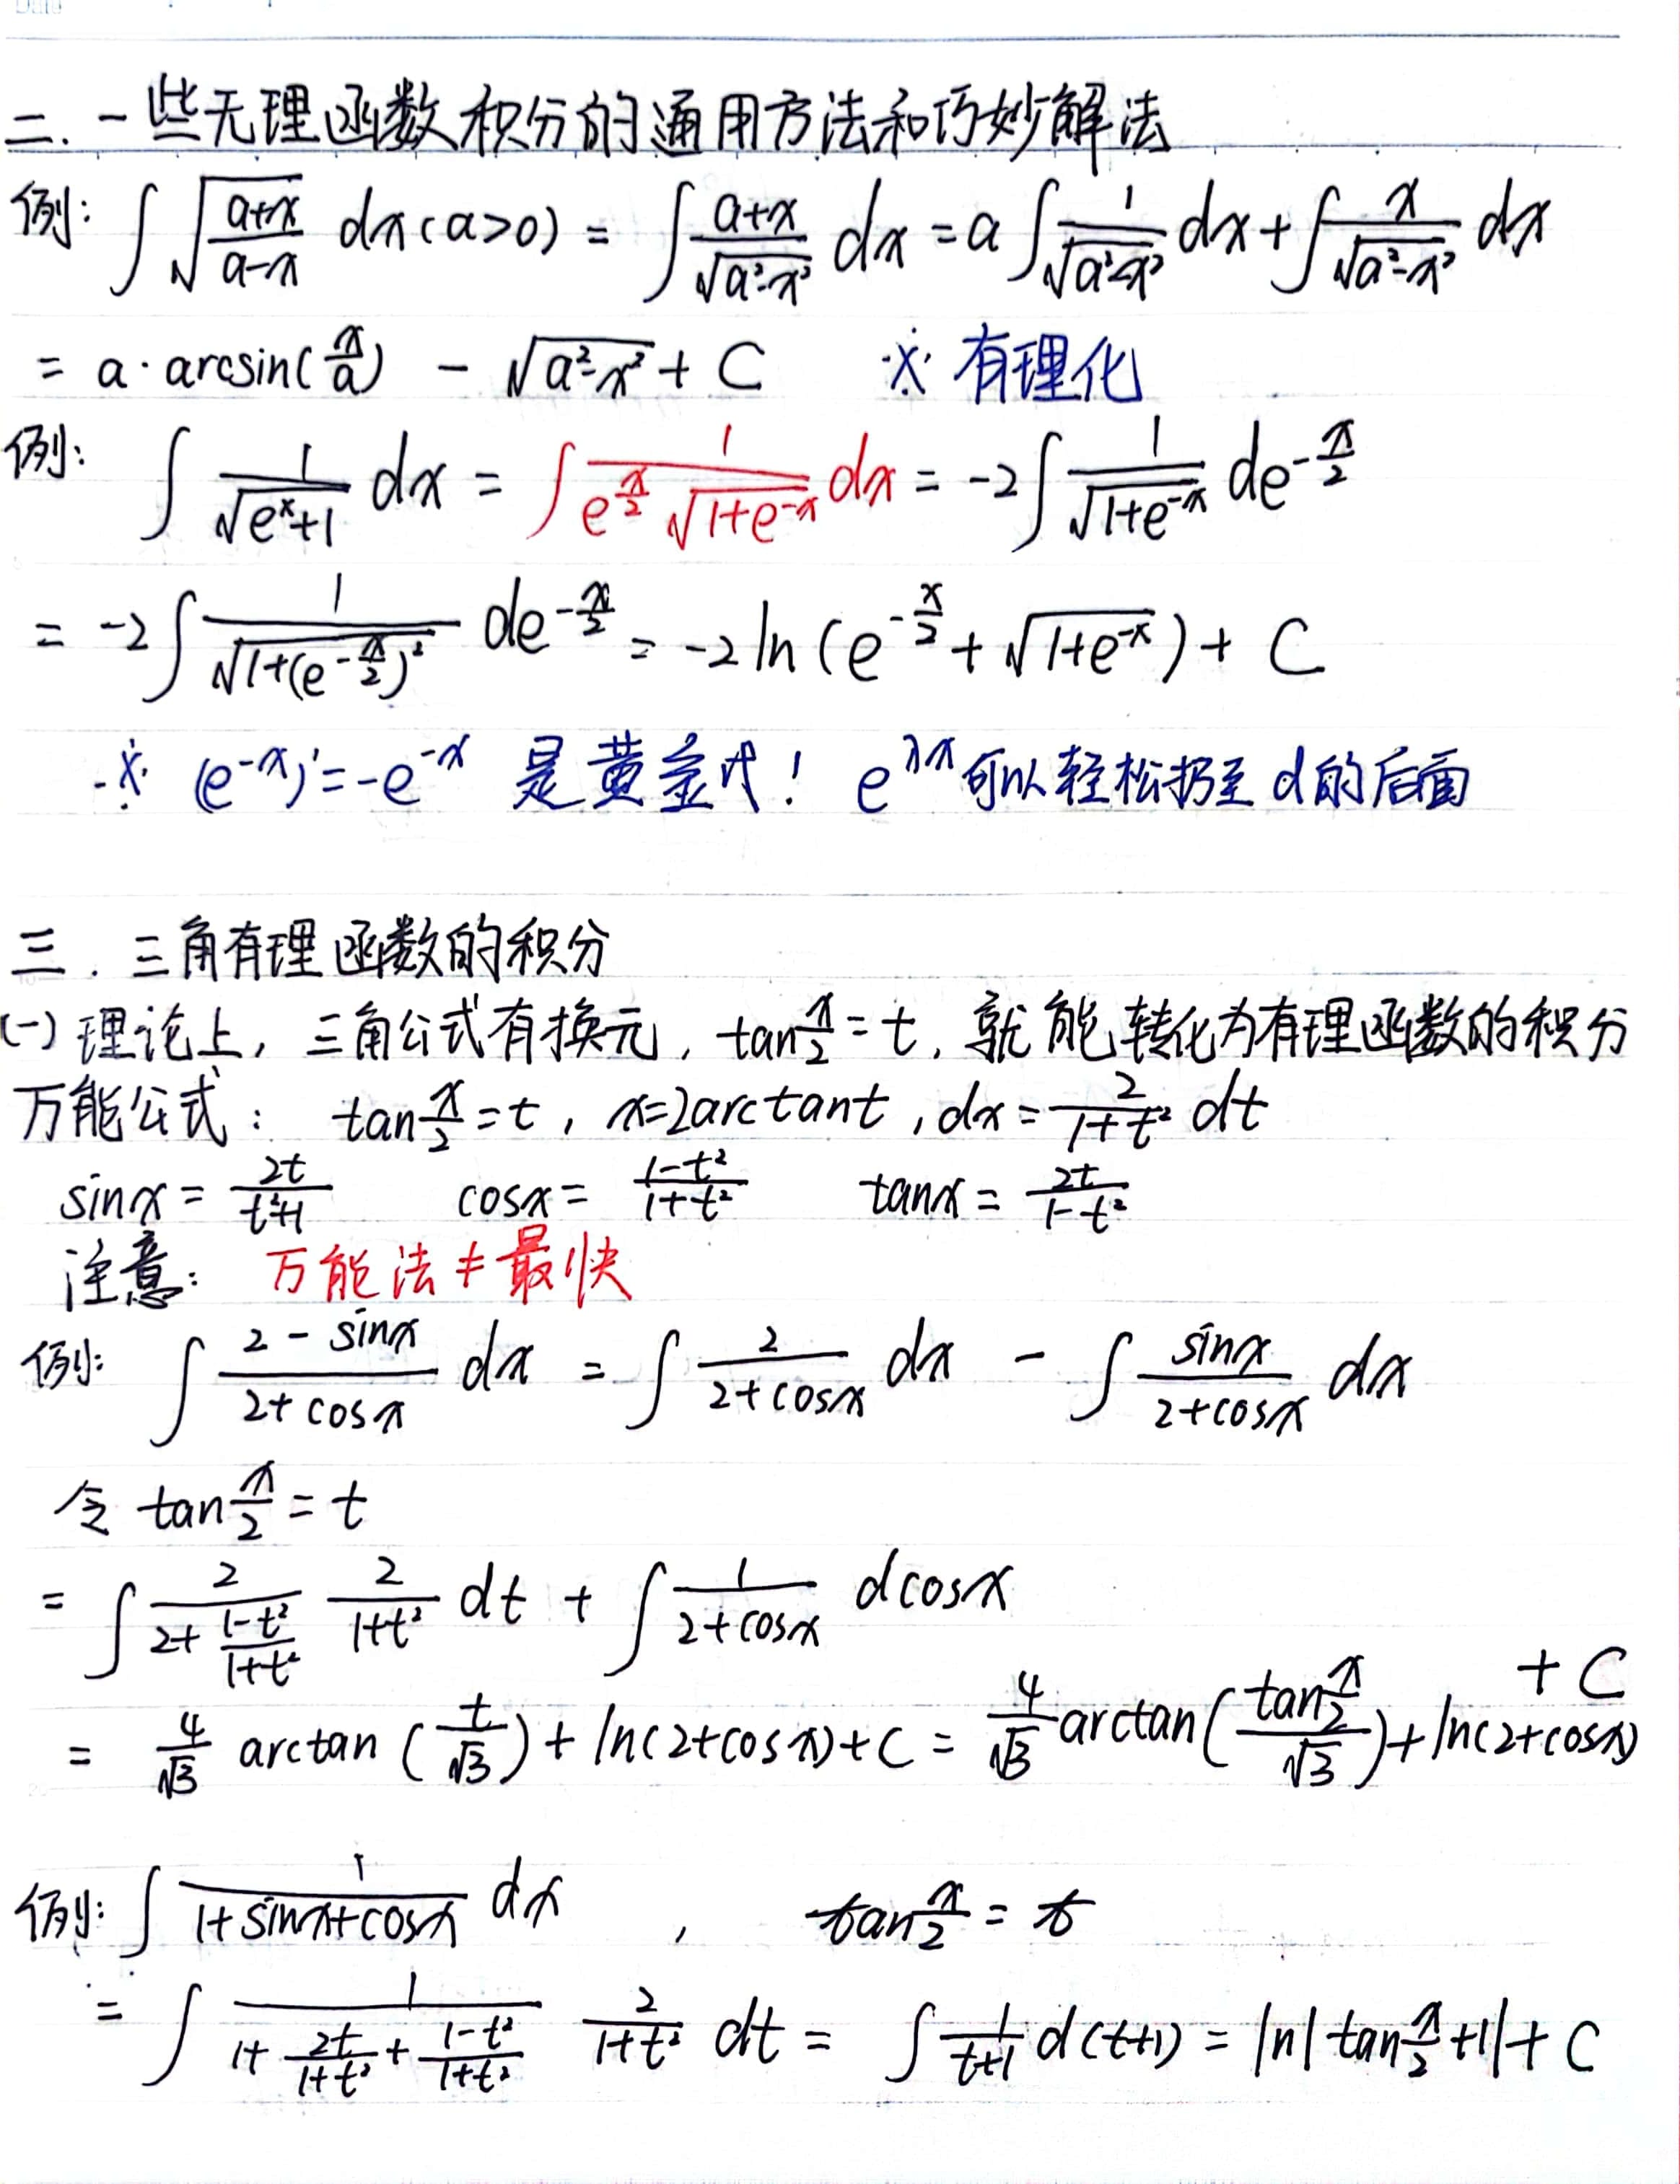 二. 一些无理函数积分的通用方法和巧妙解法
例: ∫√((a+x)/(a-x)) dx (a>0) = ∫(a+x)/√(a²-x²) dx = a∫1/√(a²-x²) dx + ∫x/√(a²-x²) dx
= a·arcsin(x/a) - √(a²-x²) + C ※ 有理化
例: ∫1/√(eˣ+1) dx = ∫1/(e^(x/2) √(1+e^(-x))) dx = -2∫1/√(1+e^(-x)) de^(-x/2)
= -2∫1/√(1+(e^(-x/2))²) de^(-x/2) = -2ln(e^(-x/2) + √(1+e^(-x))) + C
※ (e^(-x))' = -e^(-x) 是黄金式! e^(λx) 可以轻松扔至d的后面
三. 三角有理函数的积分
(一) 理论上, 三角公式有换元, tan(x/2) = t, 就能转化为有理函数的积分
万能公式: tan(x/2) = t, x=2arctant, dx = 2/(1+t²) dt
sinx = 2t/(t²+1) cosx = (1-t²)/(1+t²) tanx = 2t/(1-t²)
注意: 万能法≠最快
例: ∫(2-sinx)/(2+cosx) dx = ∫2/(2+cosx) dx - ∫sinx/(2+cosx) dx
令 tan(x/2) = t
= ∫2/(2+(1-t²)/(1+t²)) 2/(1+t²) dt + ∫1/(2+cosx) dcosx
= 4/√3 arctan(t/√3) + ln(2+cosx) + C = 4/√3 arctan(tan(x/2)/√3) + ln(2+cosx) + C
例: ∫1/(1+sinx+cosx) dx , tan(x/2) = t
= ∫1/(1+2t/(1+t²)+(1-t²)/(1+t²)) 2/(1+t²) dt = ∫1/(t+1) d(t+1) = ln|tan(x/2)+1| + C